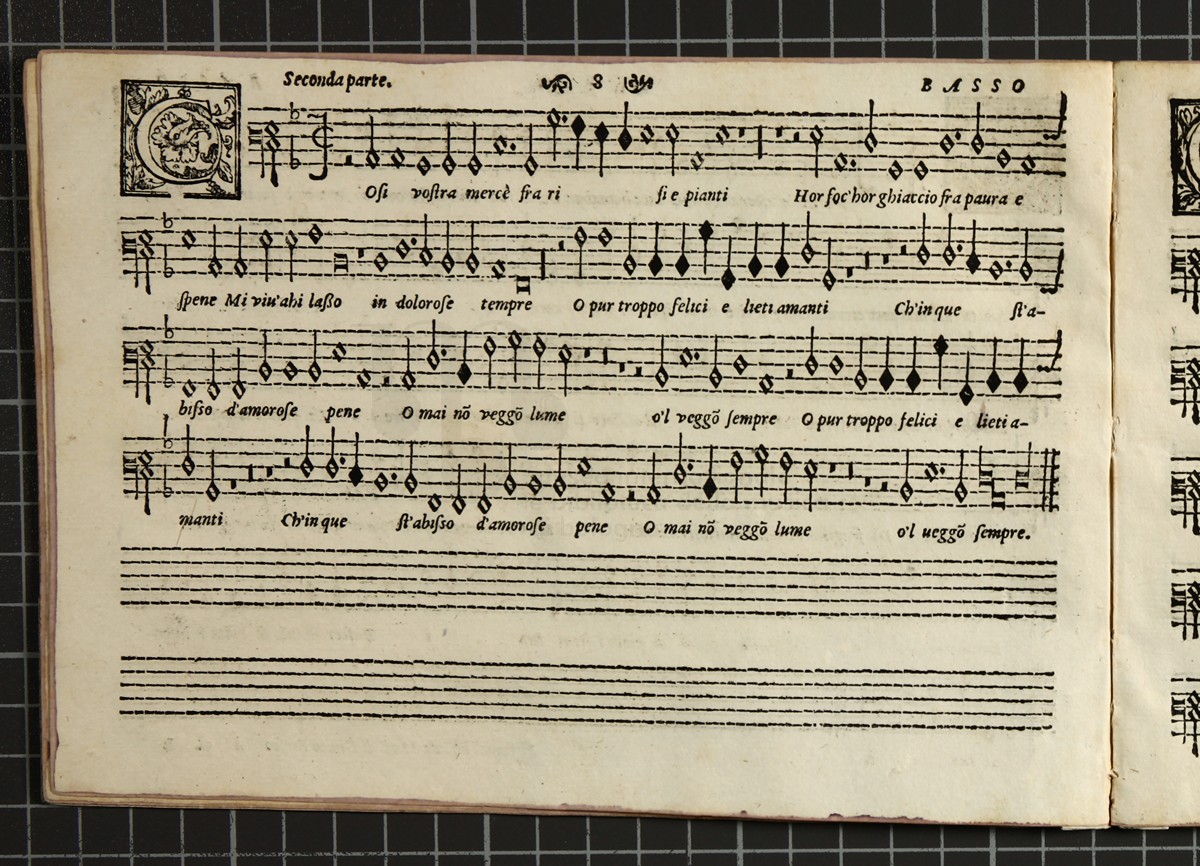 Seconda parte. 8 BASSO
COsi vostra mercè fra ri si e pianti Hor foc'hor ghiaccio fra paura e
spene Mi viu'ahi laßo in dolorose tempre O pur troppo felici e lieti amanti Ch'in que st'a-
bisso d'amorose pene O mai nõ veggõ lume o'l veggõ sempre O pur troppo felici e lieti a-
manti Ch'in que st'abisso d'amorose pene O mai nõ veggõ lume o'l ueggõ sempre.